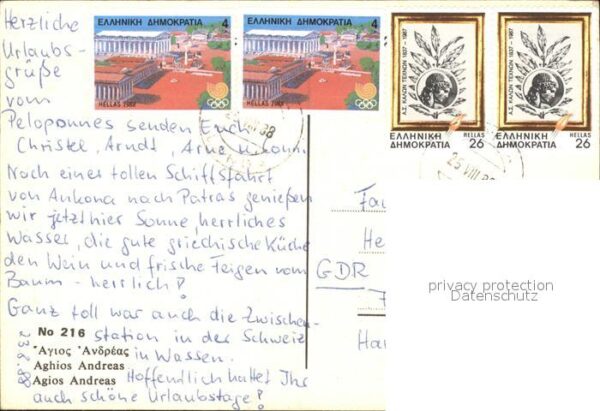 Herzliche
Urlaubs-
grüße
vom
Peloponnes senden Euch
Christel, Arndt, Arne
Nach einer tollen Schiffsfahrt
von Ankona nach Patras genießen
wir jetzt hier Sonne herrliches
Wasser, die gute griechische Küche
den Wein und frische Feigen vom
Baum - herrlich!
Ganz toll war auch die Zwischen-
station in der Schweiz
in Wassen.
Hoffentlich hattet Ihr
auch schöne Urlaubstage!
No 216
Ἅγιος Ἀνδρέας
Aghios Andreas
Agios Andreas
ΕΛΛΗΝΙΚΗ ΔΗΜΟΚΡΑΤΙΑ 4
HELLAS 1988
ΕΛΛΗΝΙΚΗ ΔΗΜΟΚΡΑΤΙΑ 4
HELLAS 1988
Α.Σ. ΚΑΛΩΝ ΤΕΧΝΩΝ 1837 - 1987
ΕΛΛΗΝΙΚΗ HELLAS
ΔΗΜΟΚΡΑΤΙΑ 26
Α.Σ. ΚΑΛΩΝ ΤΕΧΝΩΝ 1837 - 1987
ΕΛΛΗΝΙΚΗ HELLAS
ΔΗΜΟΚΡΑΤΙΑ 26
25 VIII 88
Fa
He
GDR
Ha
privacy protection
Datenschutz